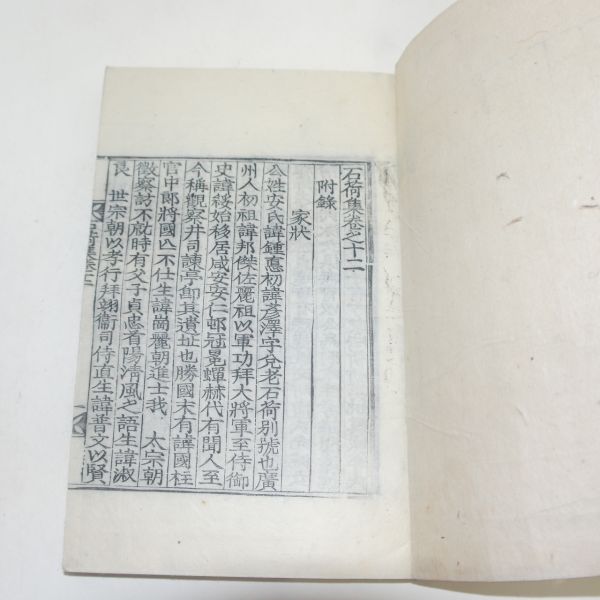 石荷集卷之十二
附錄
家狀
公姓安氏諱鍾悳初諱彦澤字兌老石荷别號也廣
州人初祖諱邦傑佐麗祖以軍功拜大將軍至侍御
史諱綏始移居咸安安仁邨冠冕輝赫代有聞人至
今稱觀察井司諫亭卽其遺址也勝國末有諱國柱
官中郎將國亾不仕生諱崗麗朝進士我 太宗朝
徵察訪不就時有父子貞忠首陽淸風之語生諱淑
良 世宗朝以孝行拜翊衞司侍直生諱普文以賢
石荷集卷十二